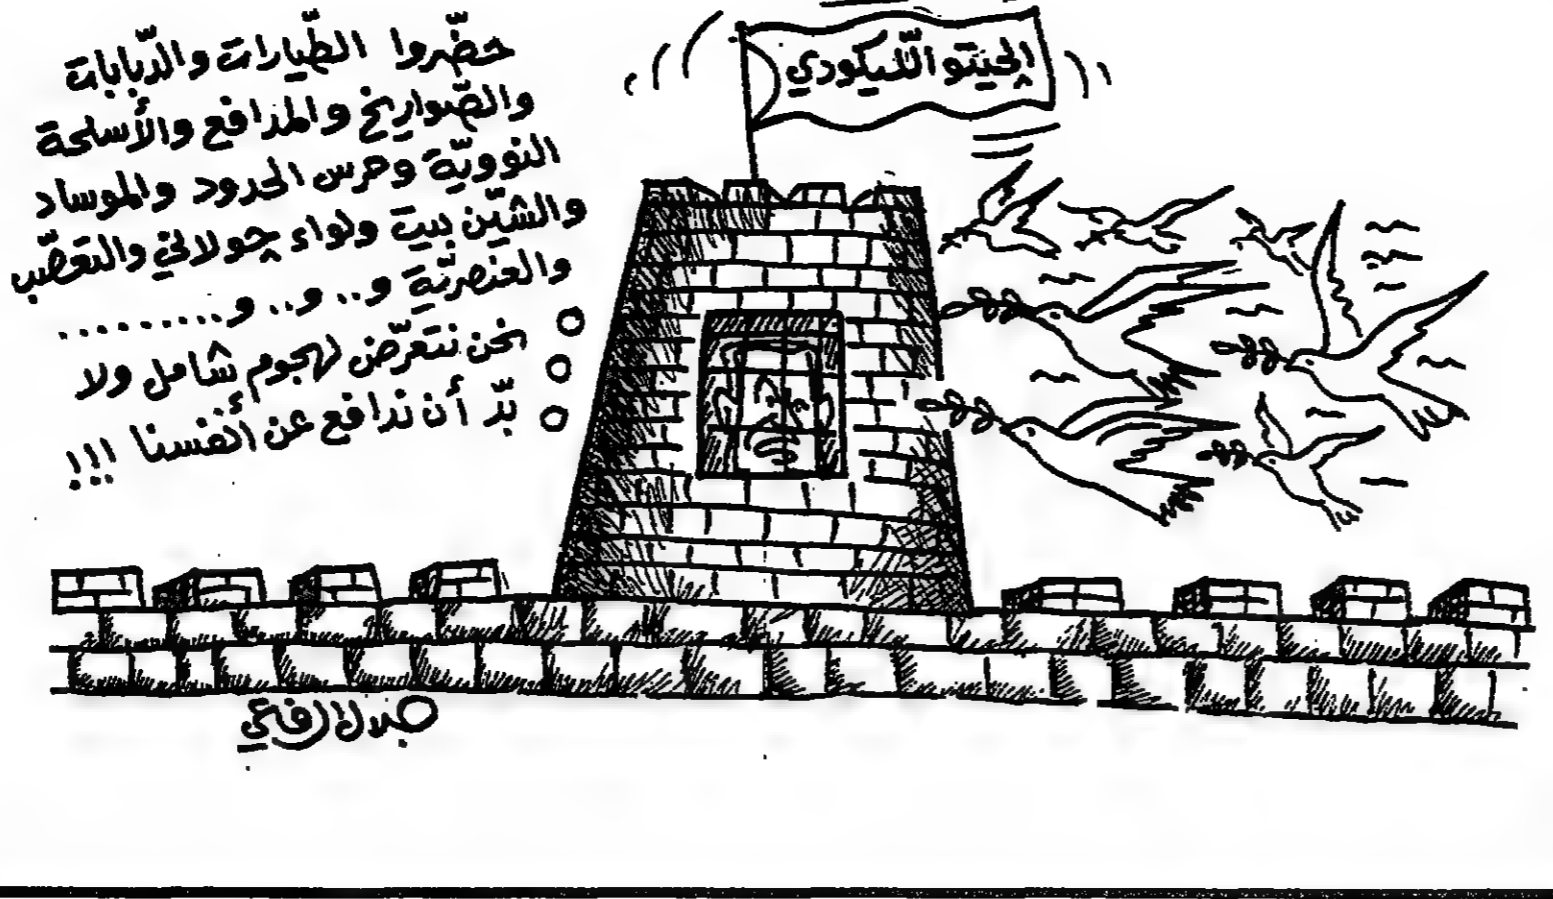 حضّروا الطّيارات والدّبابات
والصّواريخ والمدافع والأسلحة
النوويّة وحرس الحدود والموساد
والشيّن بيت ولواء چولاني والتعصّب
والعنصريّة و.. و.. و.........
نحن نتعرّض لهجوم شامل ولا
بدّ أن ندافع عن أنفسنا !!!
الچيتو اللّيكودي
جلال الرفاعي